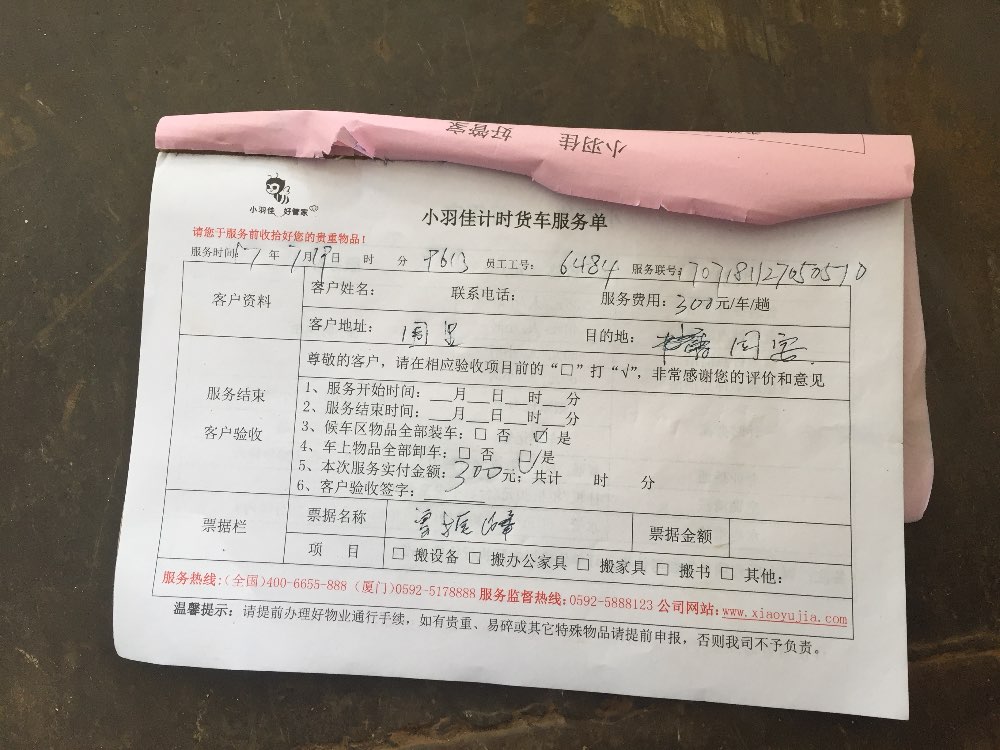 小羽佳 好管家
小羽佳 好管家
小羽佳计时货车服务单
请您于服务前收拾好您的贵重物品!
服务时间 年 7月19日 时 分 员工工号: 6484 服务联号:
客户资料
客户姓名: 联系电话: 服务费用: 300元/车/趟
客户地址: 目的地: 同安
服务结束
客户验收
尊敬的客户，请在相应验收项目前的“□”打“√”，非常感谢您的评价和意见
1、服务开始时间：___月___日___时___分
2、服务结束时间：___月___日___时___分
3、候车区物品全部装车：□ 否 ☑ 是
4、车上物品全部卸车：□ 否 ☑ 是
5、本次服务实付金额：300元；共计 时 分
6、客户验收签字：
票据栏
票据名称 票据金额
项 目 □ 搬设备 □ 搬办公家具 □ 搬家具 □ 搬书 □ 其他:
服务热线:(全国)400-6655-888 (厦门)0592-5178888 服务监督热线:0592-5888123 公司网站:www.xiaoyujia.com
温馨提示：请提前办理好物业通行手续，如有贵重、易碎或其它特殊物品请提前申报，否则我司不予负责。